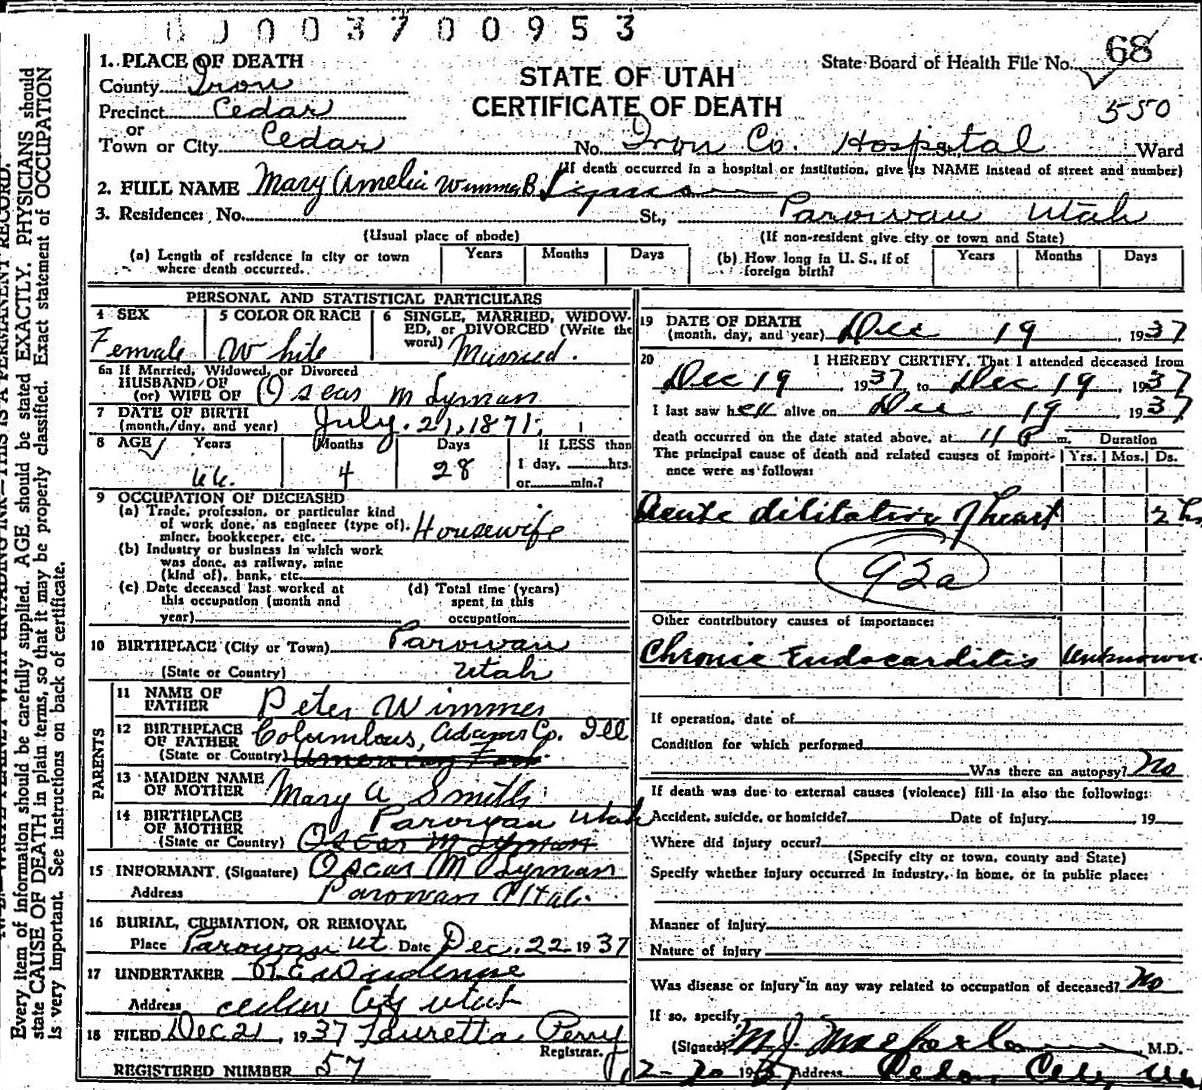 0003700953
1. PLACE OF DEATH
County Iron
Precinct Cedar
or
Town or City Cedar
STATE OF UTAH
CERTIFICATE OF DEATH
State Board of Health File No. 68
550
No. Iron Co. Hospital Ward
(If death occurred in a hospital or institution, give its NAME instead of street and number)
2. FULL NAME Mary Amelia Wimmer Lyman
3. Residence: No. St., Parowan Utah
(Usual place of abode) (If non-resident give city or town and State)
(a) Length of residence in city or town where death occurred. Years Months Days
(b) How long in U. S., if of foreign birth? Years Months Days
PERSONAL AND STATISTICAL PARTICULARS
4 SEX Female
5 COLOR OR RACE White
6 SINGLE, MARRIED, WIDOWED, or DIVORCED (Write the word) Married.
6a If Married, Widowed, or Divorced
HUSBAND OF
(or) WIFE OF Oscar M Lyman
7 DATE OF BIRTH
(month, day, and year) July. 21, 1871,
8 AGE Years Months Days If LESS than
66. 4 28 1 day, hrs.
or min.?
9 OCCUPATION OF DECEASED
(a) Trade, profession, or particular kind
of work done, as engineer (type of),
miner, bookkeeper, etc. Housewife
(b) Industry or business in which work
was done, as railway, mine
(kind of), bank, etc.
(c) Date deceased last worked at
this occupation (month and
year)
(d) Total time (years)
spent in this
occupation
10 BIRTHPLACE (City or Town) Parowan
(State or Country) Utah
PARENTS
11 NAME OF
FATHER Peter Wimmer
12 BIRTHPLACE
OF FATHER Columbus, Adams Co. Ill
(State or Country) American Fork
13 MAIDEN NAME
OF MOTHER Mary A Smith
14 BIRTHPLACE
OF MOTHER Parowan Utah
(State or Country) Oscar M Lyman
15 INFORMANT. (Signature) Oscar M Lyman
Address Parowan Utah.
16 BURIAL, CREMATION, OR REMOVAL
Place Parowan Ut Date Dec. 22 1937
17 UNDERTAKER
Address Cedar City Utah
18 FILED Dec 21, 1937 Lauretta Perry
Registrar.
REGISTERED NUMBER 57
19 DATE OF DEATH
(month, day, and year) Dec 19, 1937
20 I HEREBY CERTIFY, That I attended deceased from
Dec 19 1937 to Dec 19, 1937
I last saw her alive on Dec 19 1937
death occurred on the date stated above, at 11 P m. Duration
The principal cause of death and related causes of importance were as follows: Yrs. Mos. Ds.
Acute dilitation of heart 2 hrs
92a
Other contributory causes of importance:
Chronic Endocarditis Unknown
If operation, date of
Condition for which performed
Was there an autopsy? No
If death was due to external causes (violence) fill in also the following:
Accident, suicide, or homicide? Date of injury 19
Where did injury occur?
(Specify city or town, county and State)
Specify whether injury occurred in industry, in home, or in public place:
Manner of injury
Nature of injury
Was disease or injury in any way related to occupation of deceased? No
If so, specify
(Signed) M J Macfarlane M.D.
12-20 1937 Address Cedar City Ut
Every item of information should be carefully supplied. AGE should be stated EXACTLY. PHYSICIANS should
state CAUSE OF DEATH in plain terms, so that it may be properly classified. Exact statement of OCCUPATION
is very important. See instructions on back of certificate.